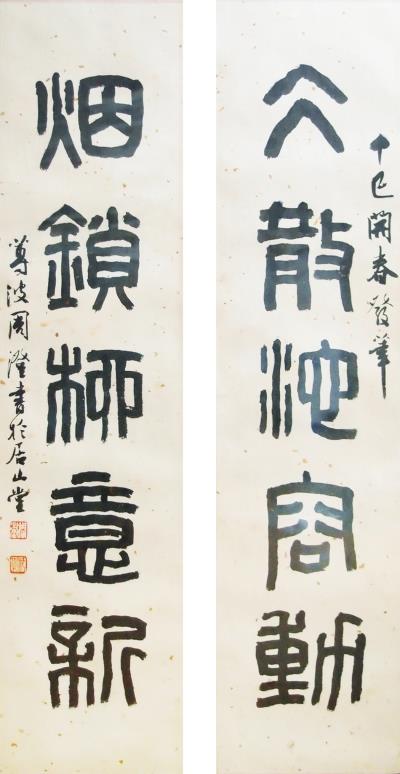 丁巳開春發筆
仌散池容動
烟鎖柳意新
蓴波周澄書於居山堂